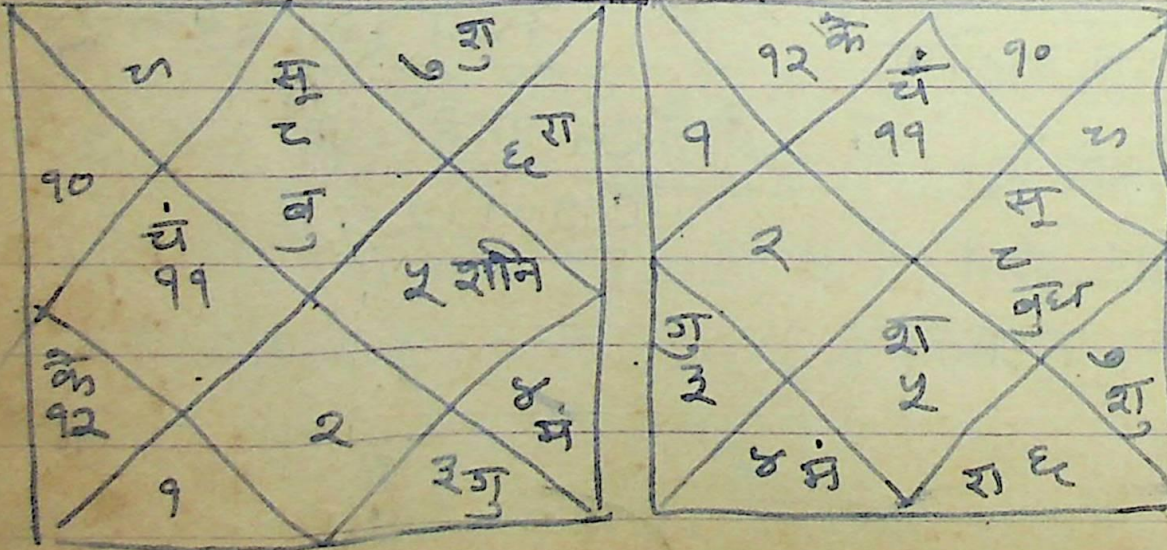 ९
सू
८
बु
७ शु
६ रा
१०
चं
११
५ शनि
१२ के
१
२
३ गु
४
मं
१२ के
चं
११
१०
१
९
२
सू
८
बुध
गु
३
श
५
७
शु
४ मं
रा ६